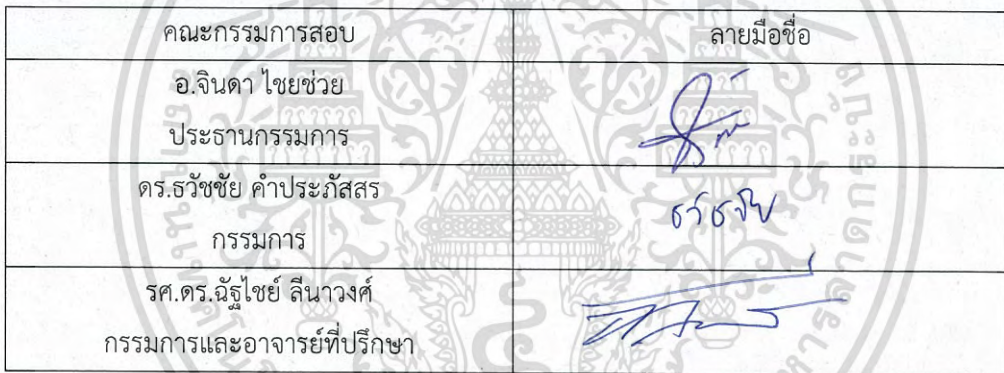 คณะกรรมการสอบ ลายมือชื่อ
อ.จินดา ไชยช่วย
ประธานกรรมการ
ดร.ธวัชชัย คำประภัสสร
ธวัชชัย
กรรมการ
รศ.ดร.ฉัฐไชย์ ลีนาวงศ์
กรรมการและอาจารย์ที่ปรึกษา